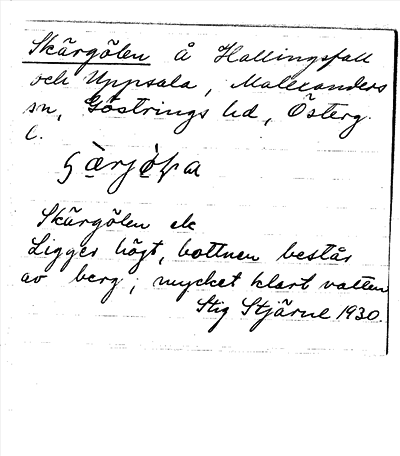 Skärgölen å Hallingsfall
och Uppsala, Malexanders
sn, Göstrings hd, Österg.
l.
Skärgölen ek
Ligger högt, bottnen består
av berg; mycket klart vatten
Stig Stjärne 1930.